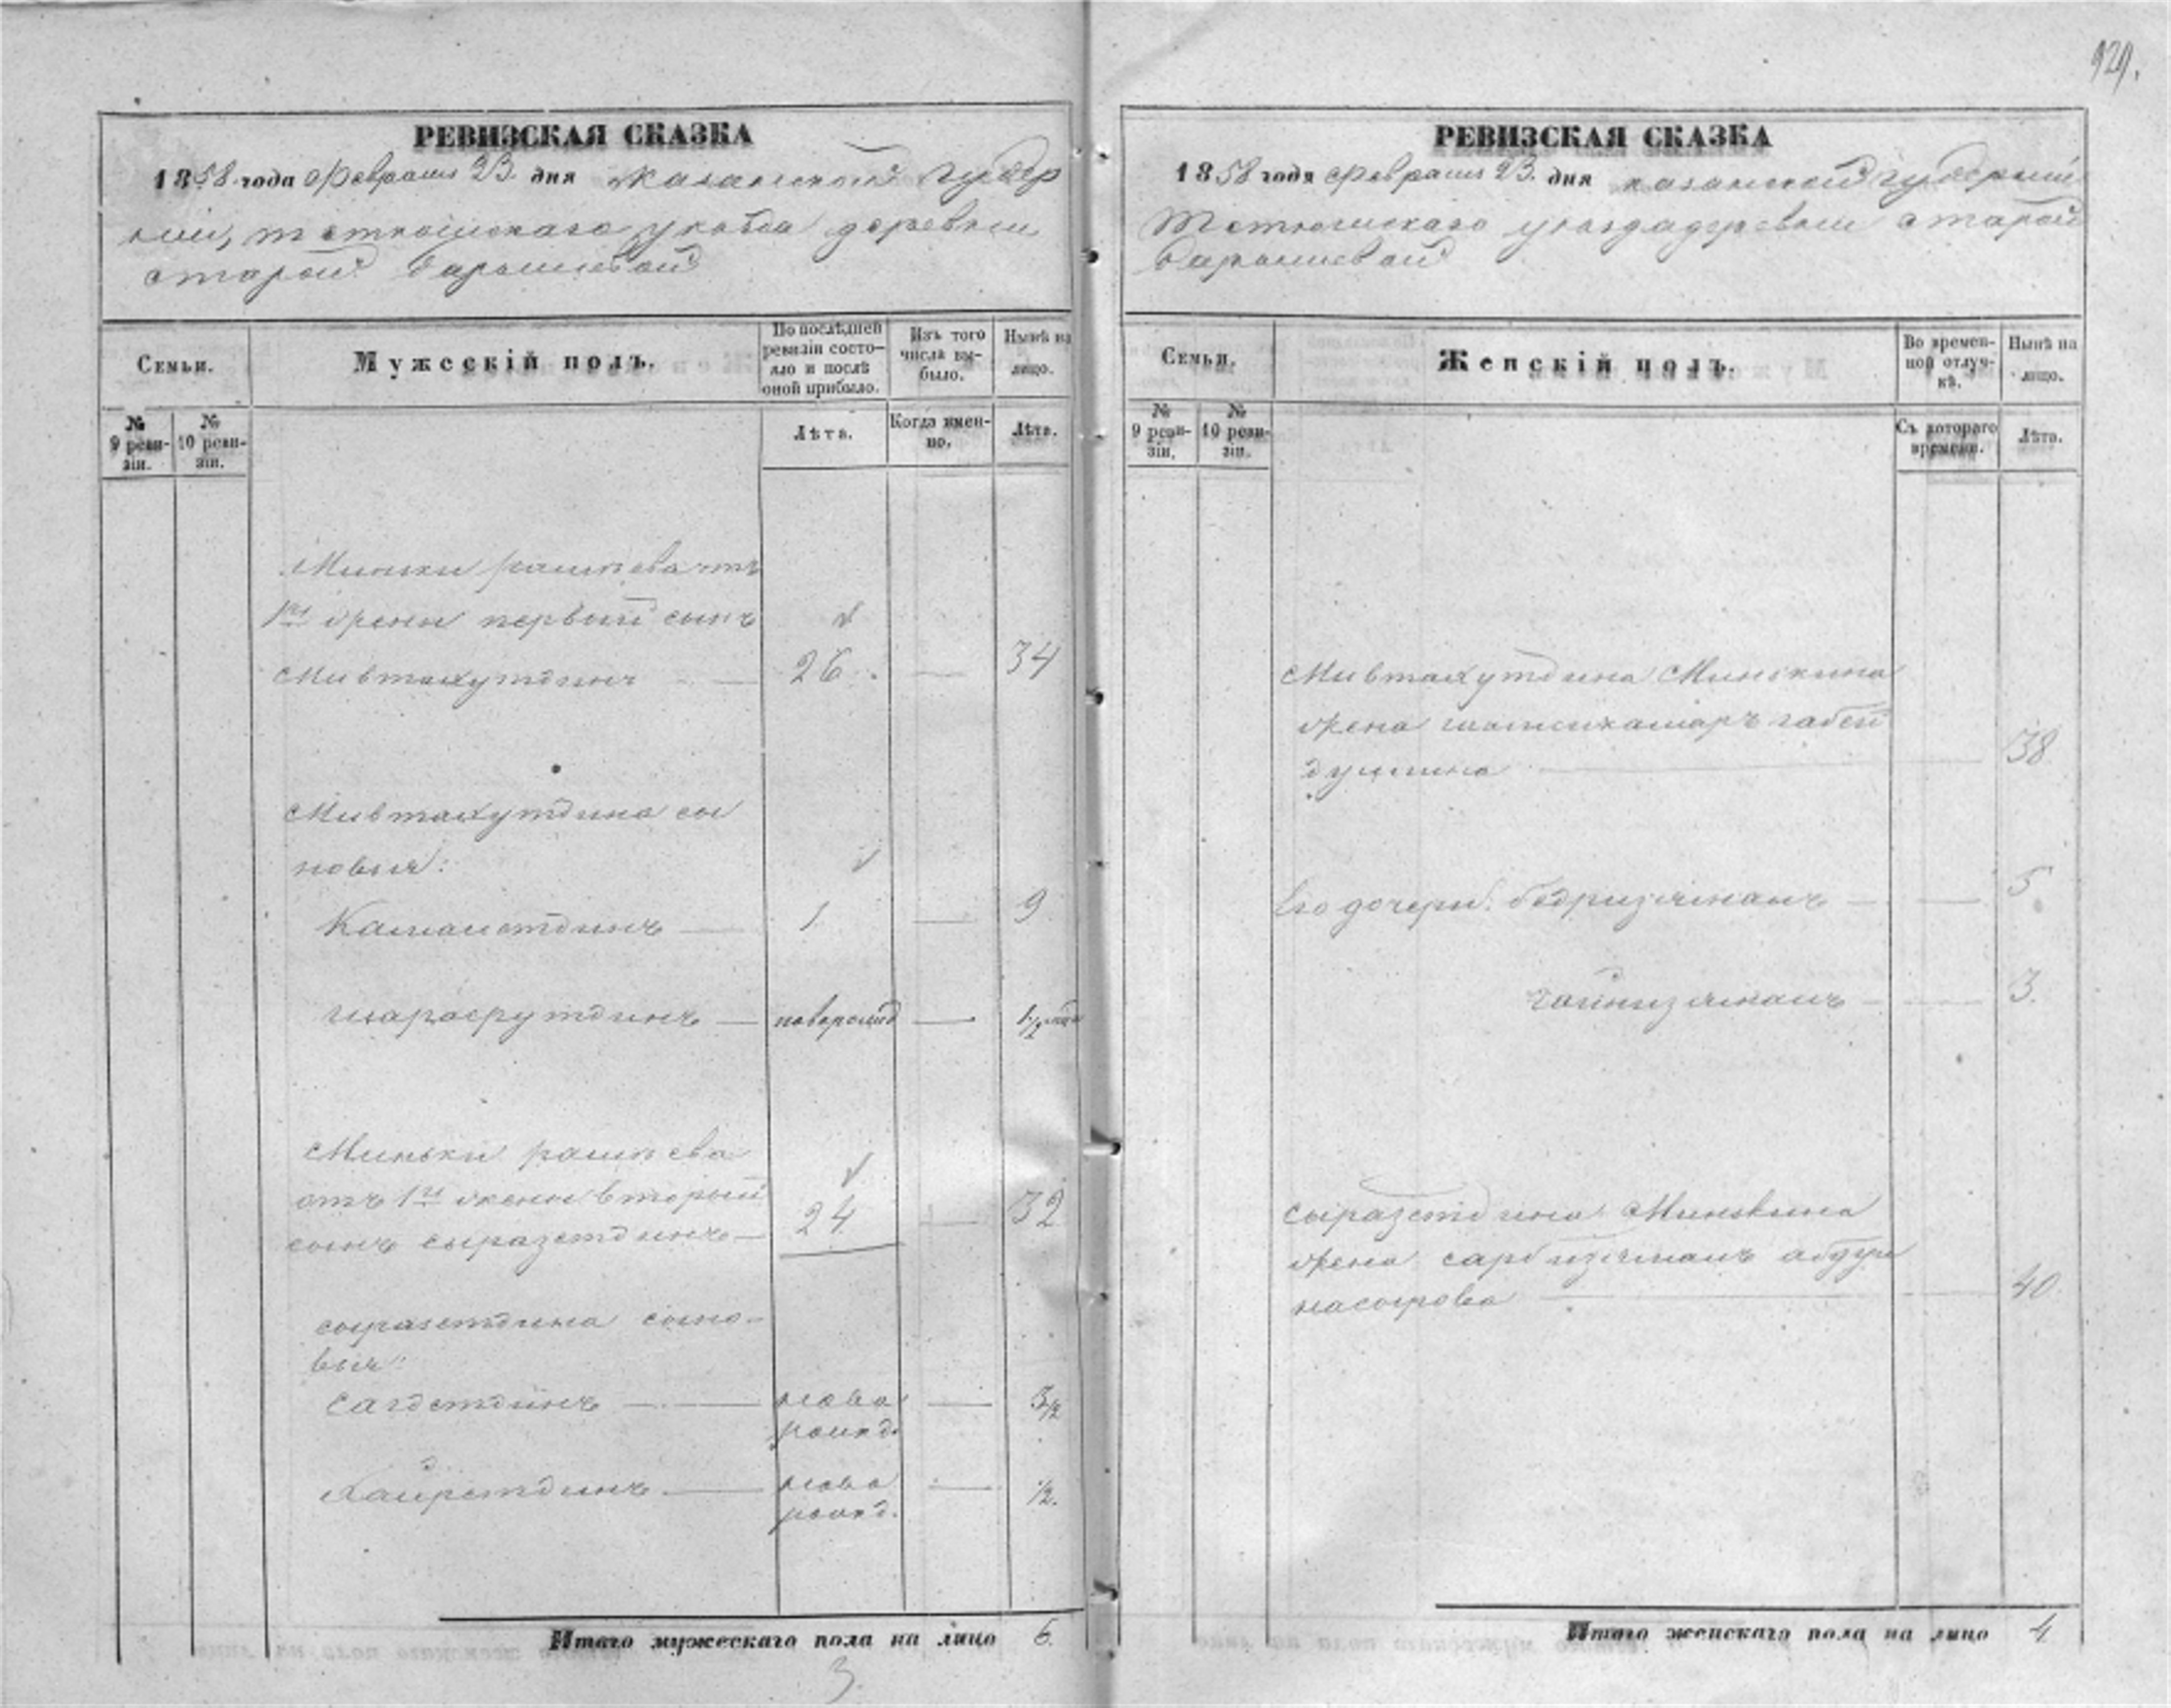 929.
РЕВИЗСКАЯ СКАЗКА
1858 года февраля 23 дня Казанской губер
нии, тетюшскаго уезда деревни
старой барышевой
Семьи.
Мужескій полъ.
По послѣдней ревизіи состояло и послѣ оной прибыло.
Изъ того числа выбыло.
Нынѣ на лицо.
№ 9 ревизіи.
№ 10 ревизіи.
Лѣта.
Когда именно.
Лѣта.
Миньки от
1й жены первый сынъ
Мивтахутдинъ 26 — 34
Мивтахутдина сы
новья:
Камалетдинъ — 1 — 9
шарафутдинъ — новорожд — 1/2
Миньки
отъ 1й жены вторый
сынъ сыразетдинъ — 24 — 32
сыразетдина сыно-
вья:
Сагдетдинъ — ново рожд. — 3/2
Хайретдинъ — ново рожд. — 1/2.
Итого мужескаго пола на лицо 6.
3.
РЕВИЗСКАЯ СКАЗКА
1858 года февраля 23. дня казанской губернии
Тетюшскаго уезда деревни старой
барышевой
Семьи.
Женскій полъ.
Во временной отлучкѣ.
Нынѣ на лицо.
№ 9 ревизіи.
№ 10 ревизіи.
Съ котораго времени.
Лѣта.
Мивтахутдина Минькина
жена шамсикамаръ габей
дуллина — 38
Его дочери: бедризяманъ — 5
гайнизяманъ — 3.
сыразетдина Минькина
жена сарбизяманъ абдул
насырова — 40
Итого женскаго пола на лицо 4